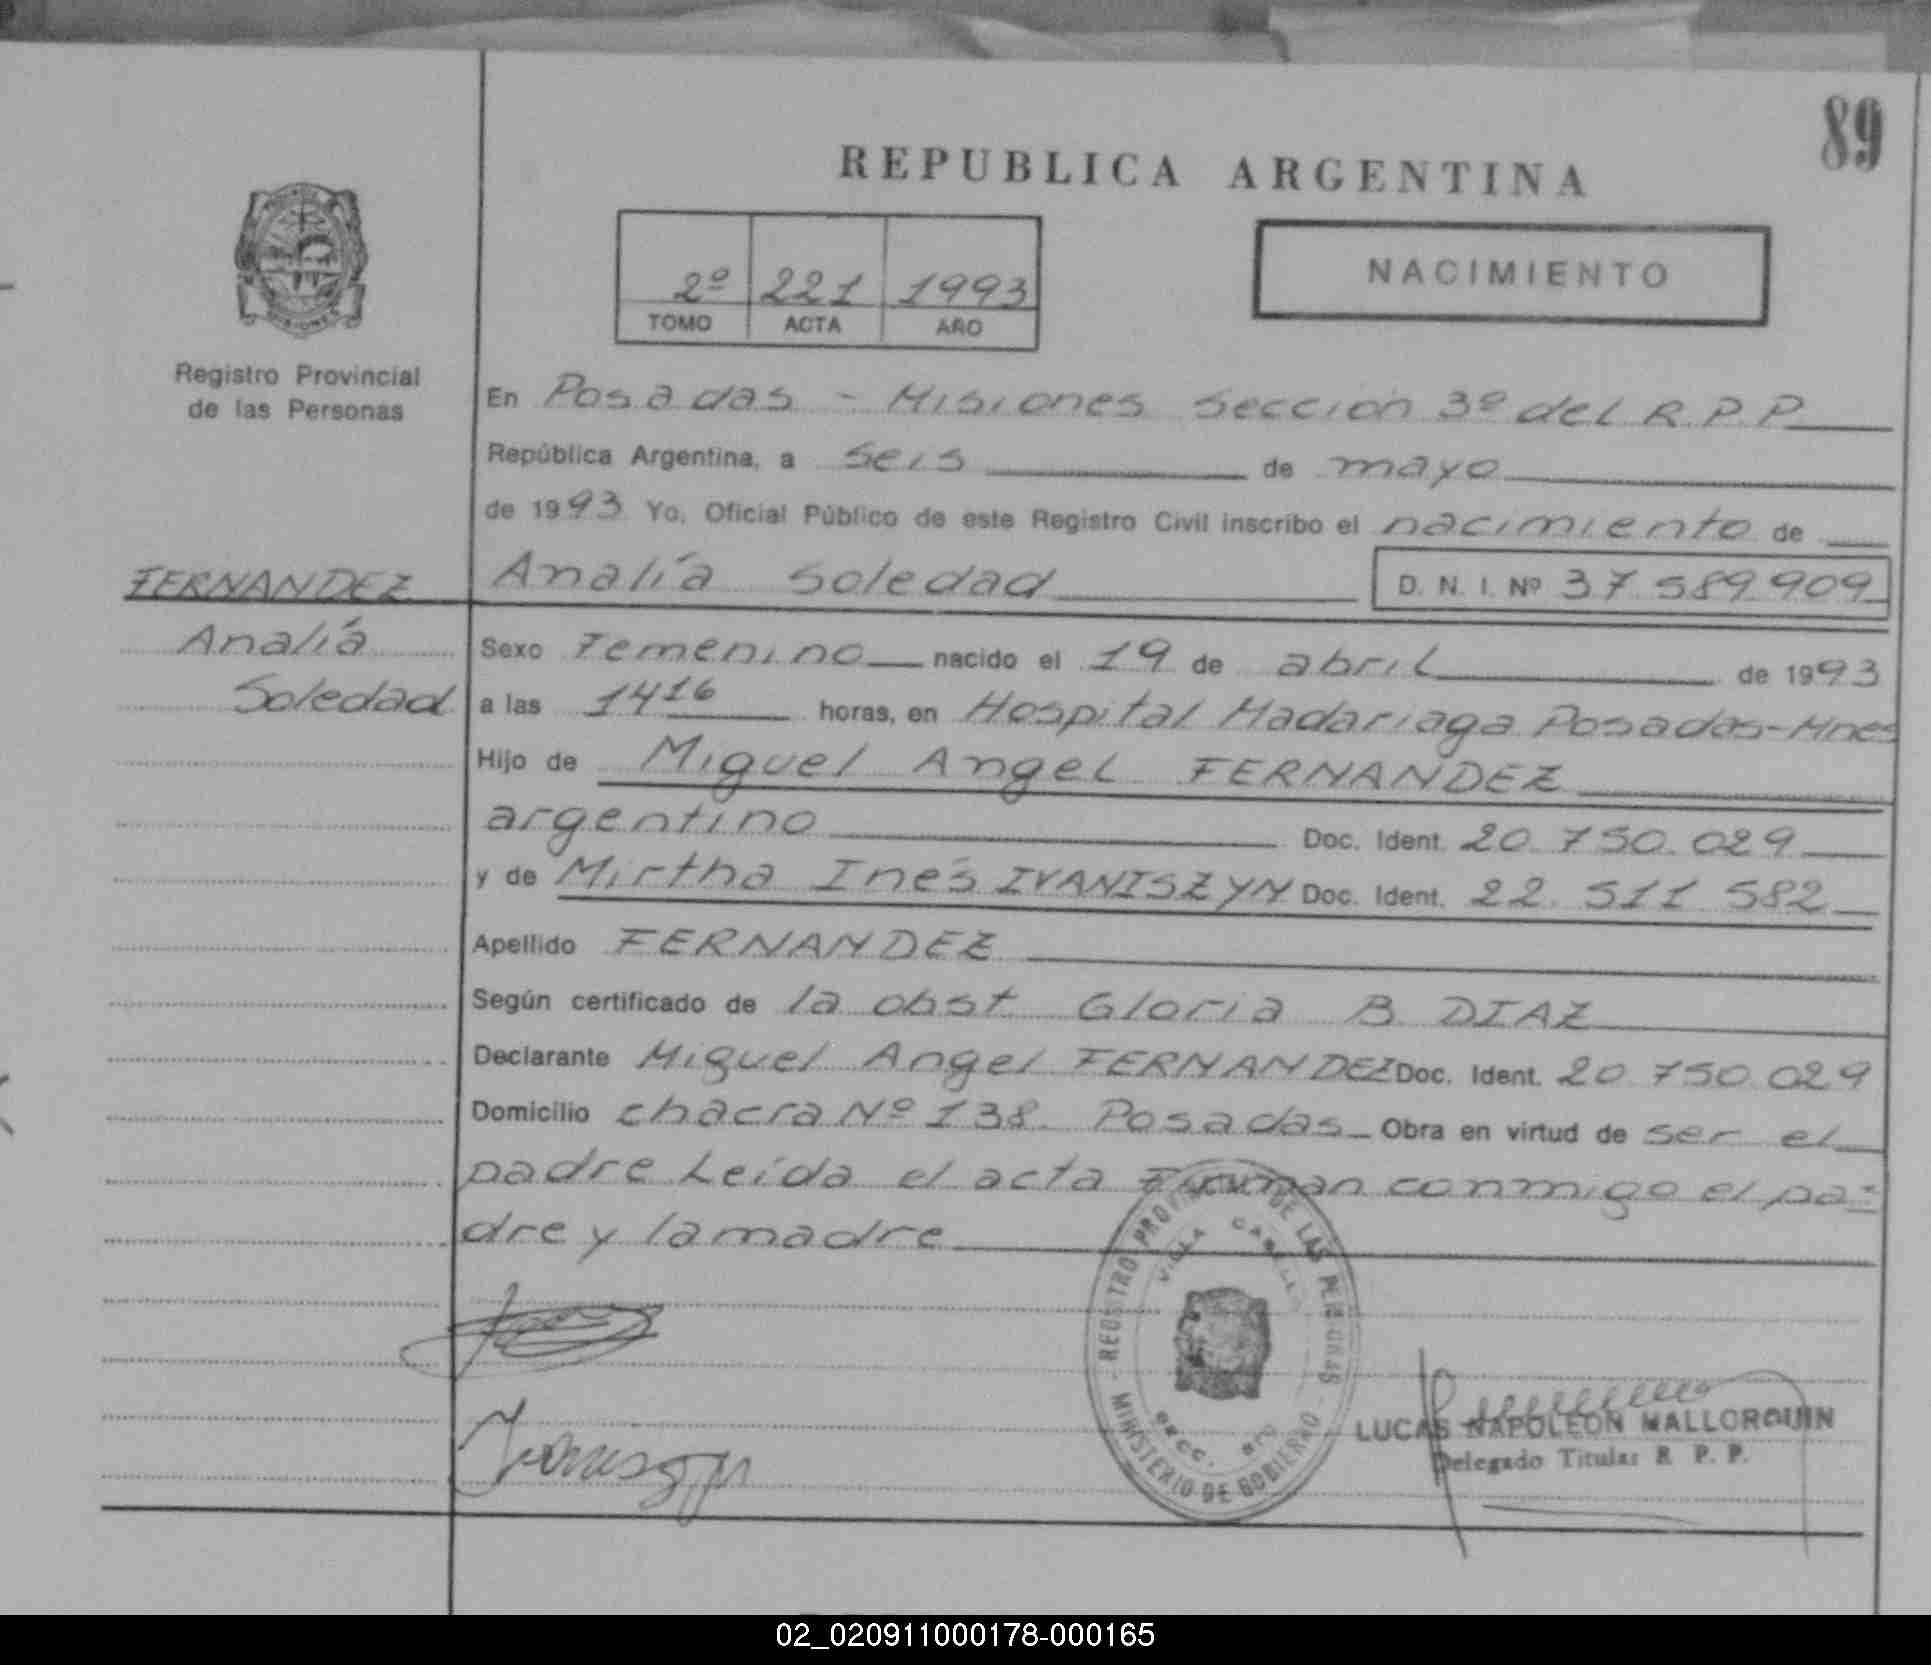 89
REPUBLICA ARGENTINA
2º 221 1993
TOMO ACTA AÑO
NACIMIENTO
MISIONES
Registro Provincial
de las Personas
En Posadas - Misiones Sección 3º del R.P.P
República Argentina, a seis de mayo
de 1993 Yo, Oficial Público de este Registro Civil inscribo el nacimiento de
FERNANDEZ Analía Soledad D. N. I. Nº 37 589 909
Analía
Soledad
Sexo Femenino nacido el 19 de abril de 1993
a las 14 16 horas, en Hospital Madariaga Posadas-Mnes
Hijo de Miguel Angel FERNANDEZ
argentino Doc. Ident. 20.750.029
y de Mirtha Inés IVANISZYN Doc. Ident. 22.511 582
Apellido FERNANDEZ
Según certificado de la obst Gloria B. DIAZ
Declarante Miguel Angel FERNANDEZ Doc. Ident. 20 750 029
Domicilio chacra Nº 138. Posadas Obra en virtud de ser el
padre Leída el acta Firman conmigo el pa=
dre y la madre
REGISTRO PROVINCIAL DE LAS PERSONAS
VILLA CABELLO
SECC. 3ra
MINISTERIO DE GOBIERNO
LUCAS NAPOLEON MALLORQUIN
Delegado Titular R. P. P.
02_020911000178-000165